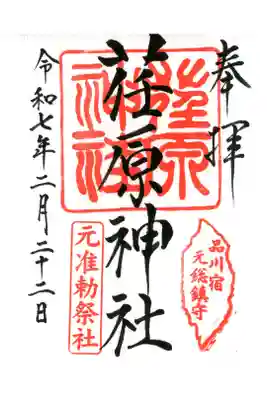 奉拝
品川宿
元総鎮守
荏原神社
元准勅祭社
令和七年二月二十二日